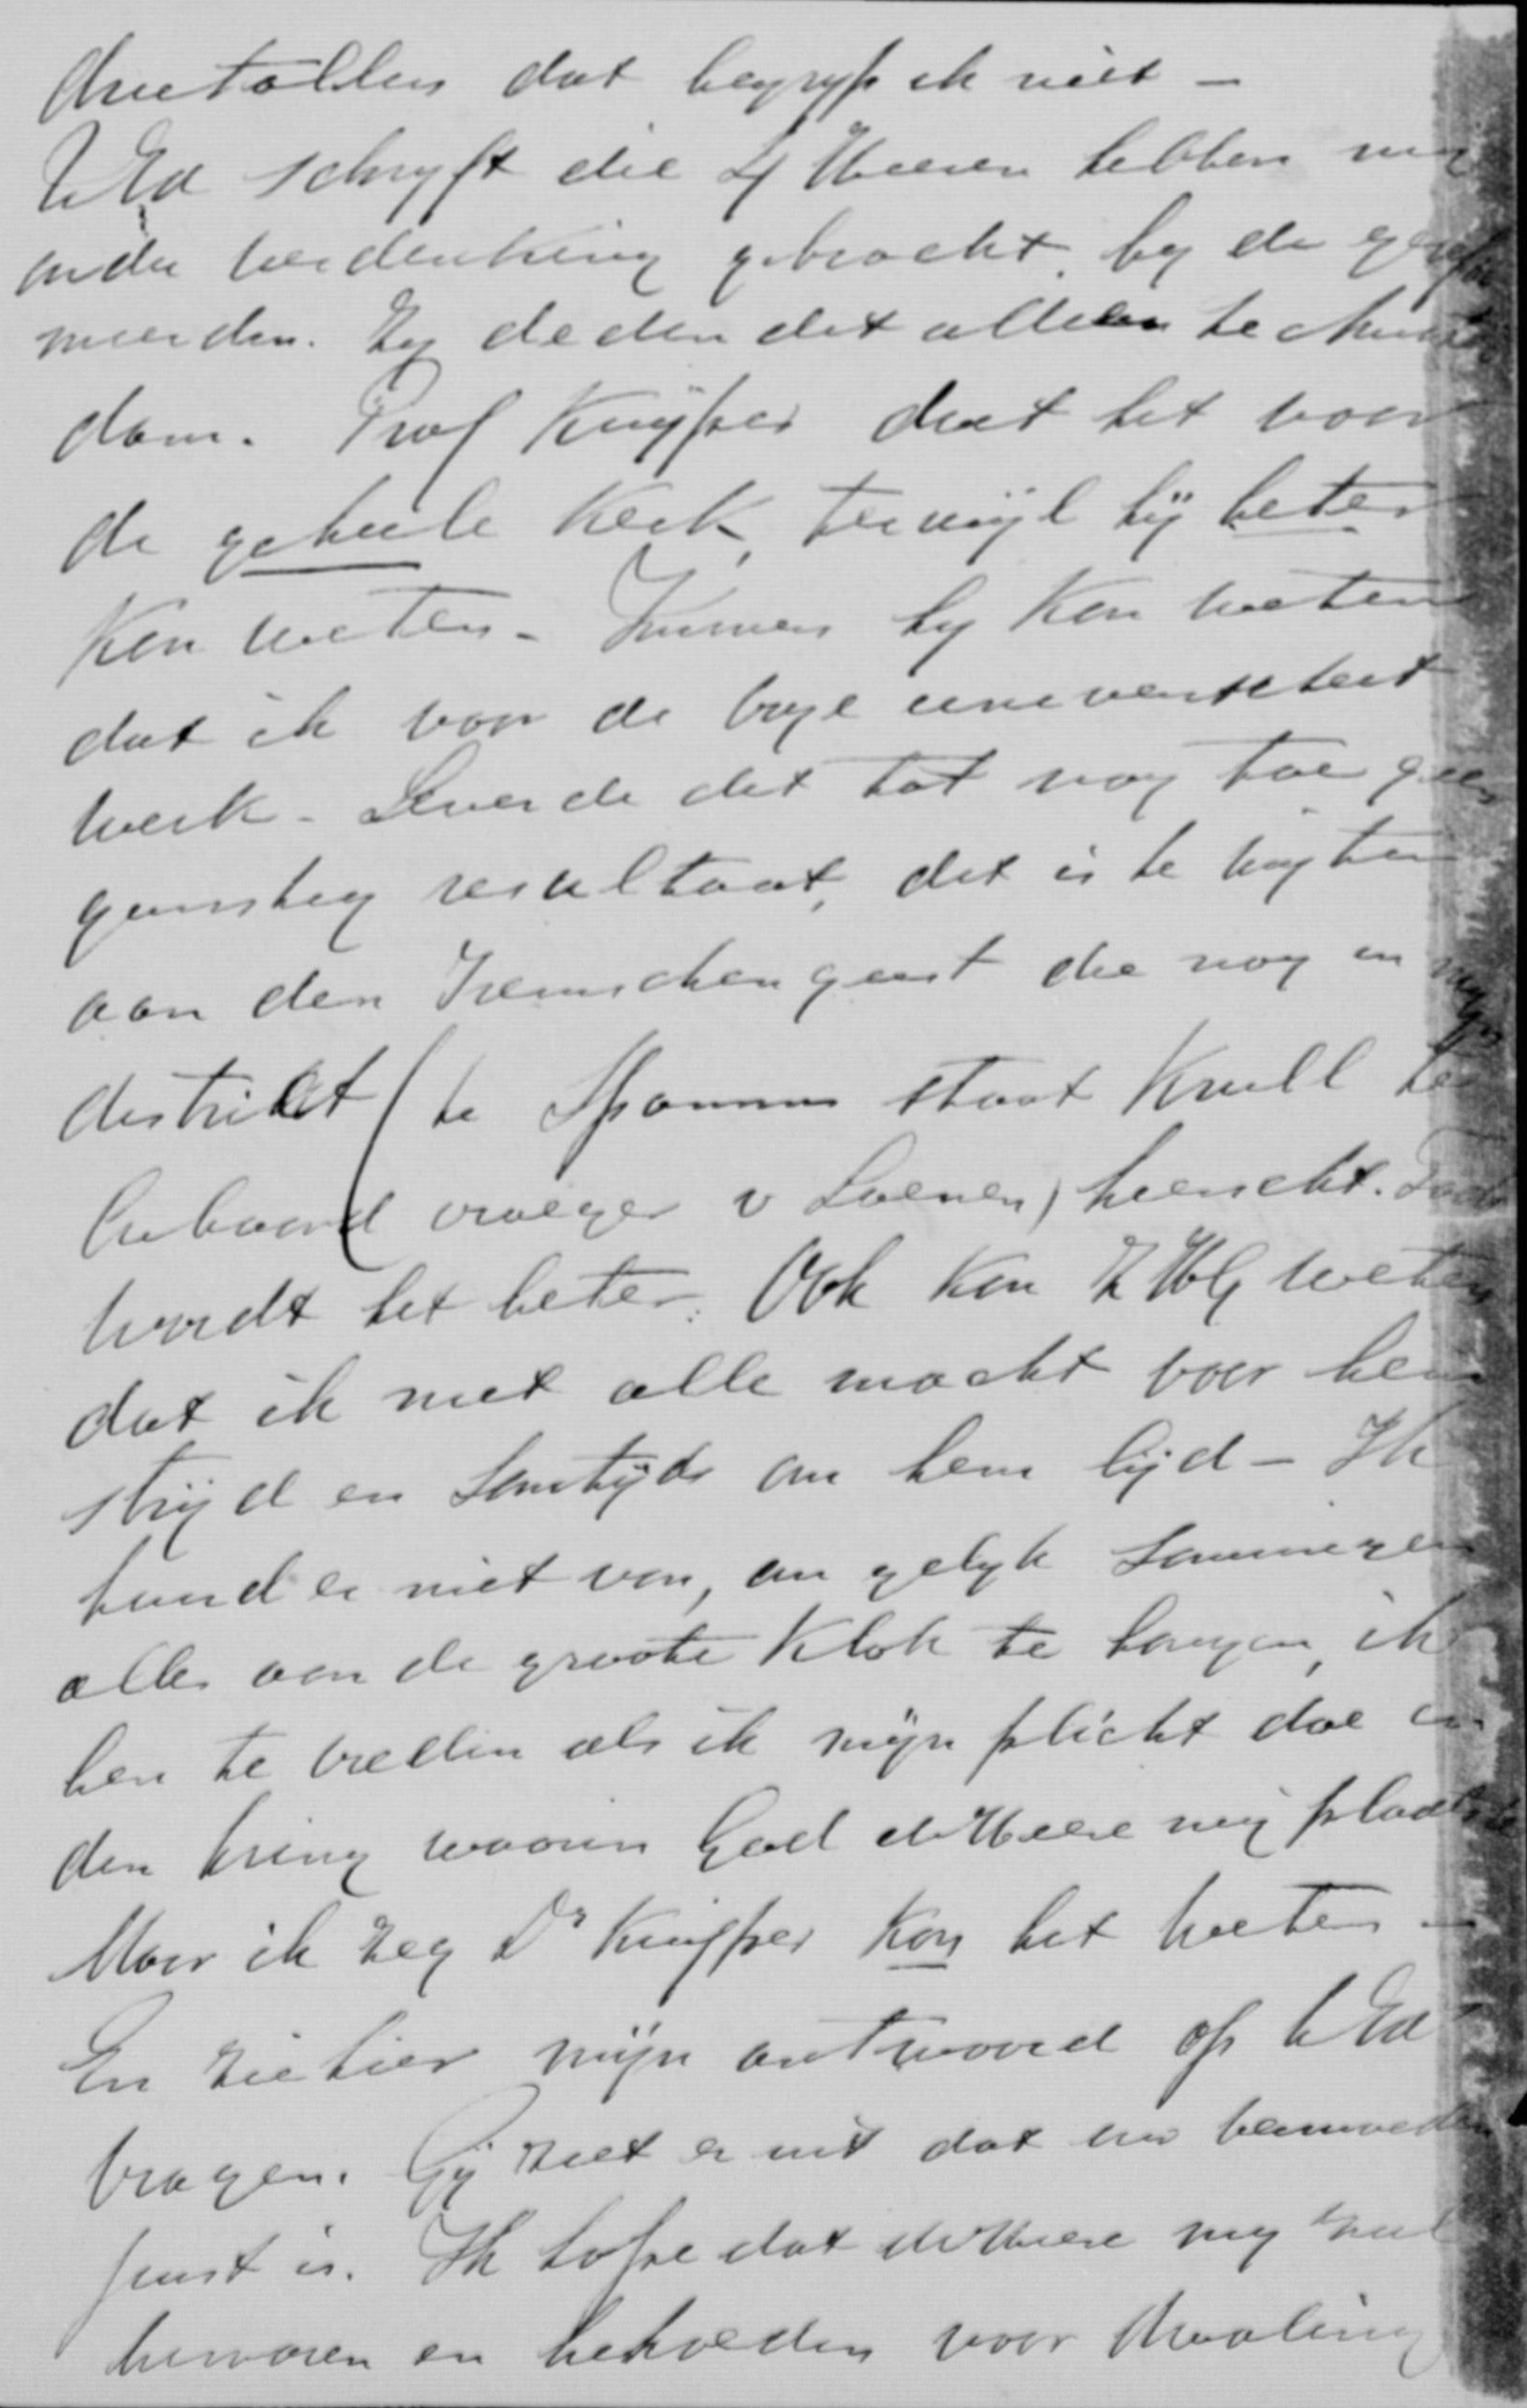 drietallen dat begryp ik niet —
UEd schryft die 4 Heeren hebben my
onder verdenking gebracht by de gerefor
meerden. Zy deden dit alleen te Amster
dam. Prof Kuyper doet het voor
de geheele Kerk, terwijl hij beter
kon weten. Immers hy kon weten
dat ik voor de vrye universiteit
werk. Leverde dit tot nog toe geen
gunstig resultaat, dit is te wyten
aan den Irenischen geest die nog in myn
distrikt (te Spannum staat Krull te
Cubaard vroeger v Loenen) heerscht. Toch
wordt het beter. Ook kon ZHG weten
dat ik met alle macht voor hem
strijd en somtijds om hem lijd — Ik
houd er niet van, om gelyk sommigen
alles aan de groote klok te hangen, ik
ben te vreden als ik mijn plicht doe in
den kring waarin God de Heere mij plaatste
Maar ik zeg Dr Kuijper kon het weten —
En zie hier mijn antwoord op UEd
vragen. Gij ziet er uit dat uw vermoeden
juist is. Ik hope dat de Heere my zal
bewaren en behoeden voor dwaling